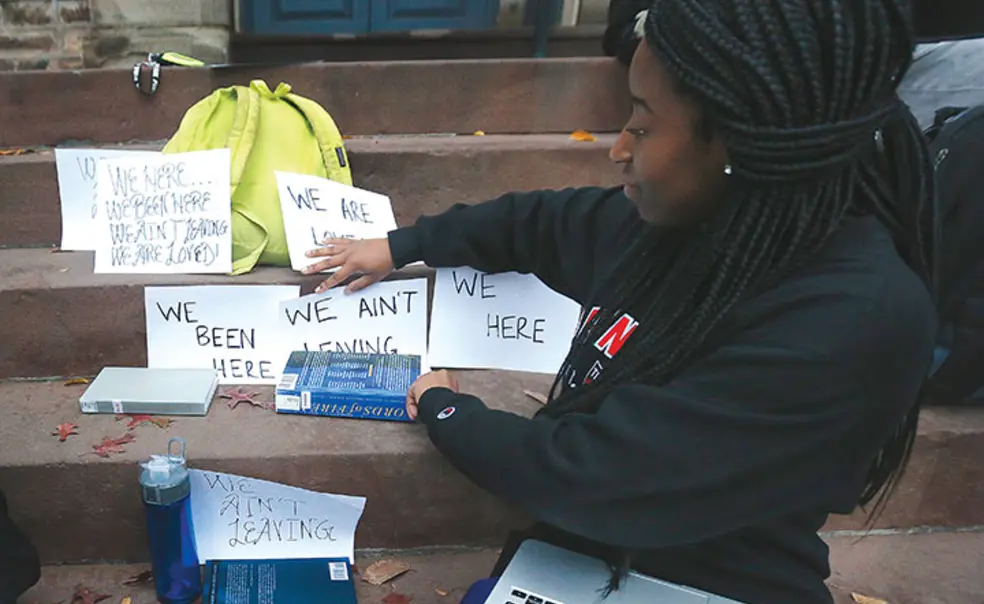 W
WE HERE...
WE BEEN HERE
WE AIN'T LEAVING
WE ARE LOVED!
WE ARE
WE
BEEN
HERE
WE AIN'T
LEAVING
WE
HERE
N
ORDS of FIRE
WE
AIN'T
LEAVING